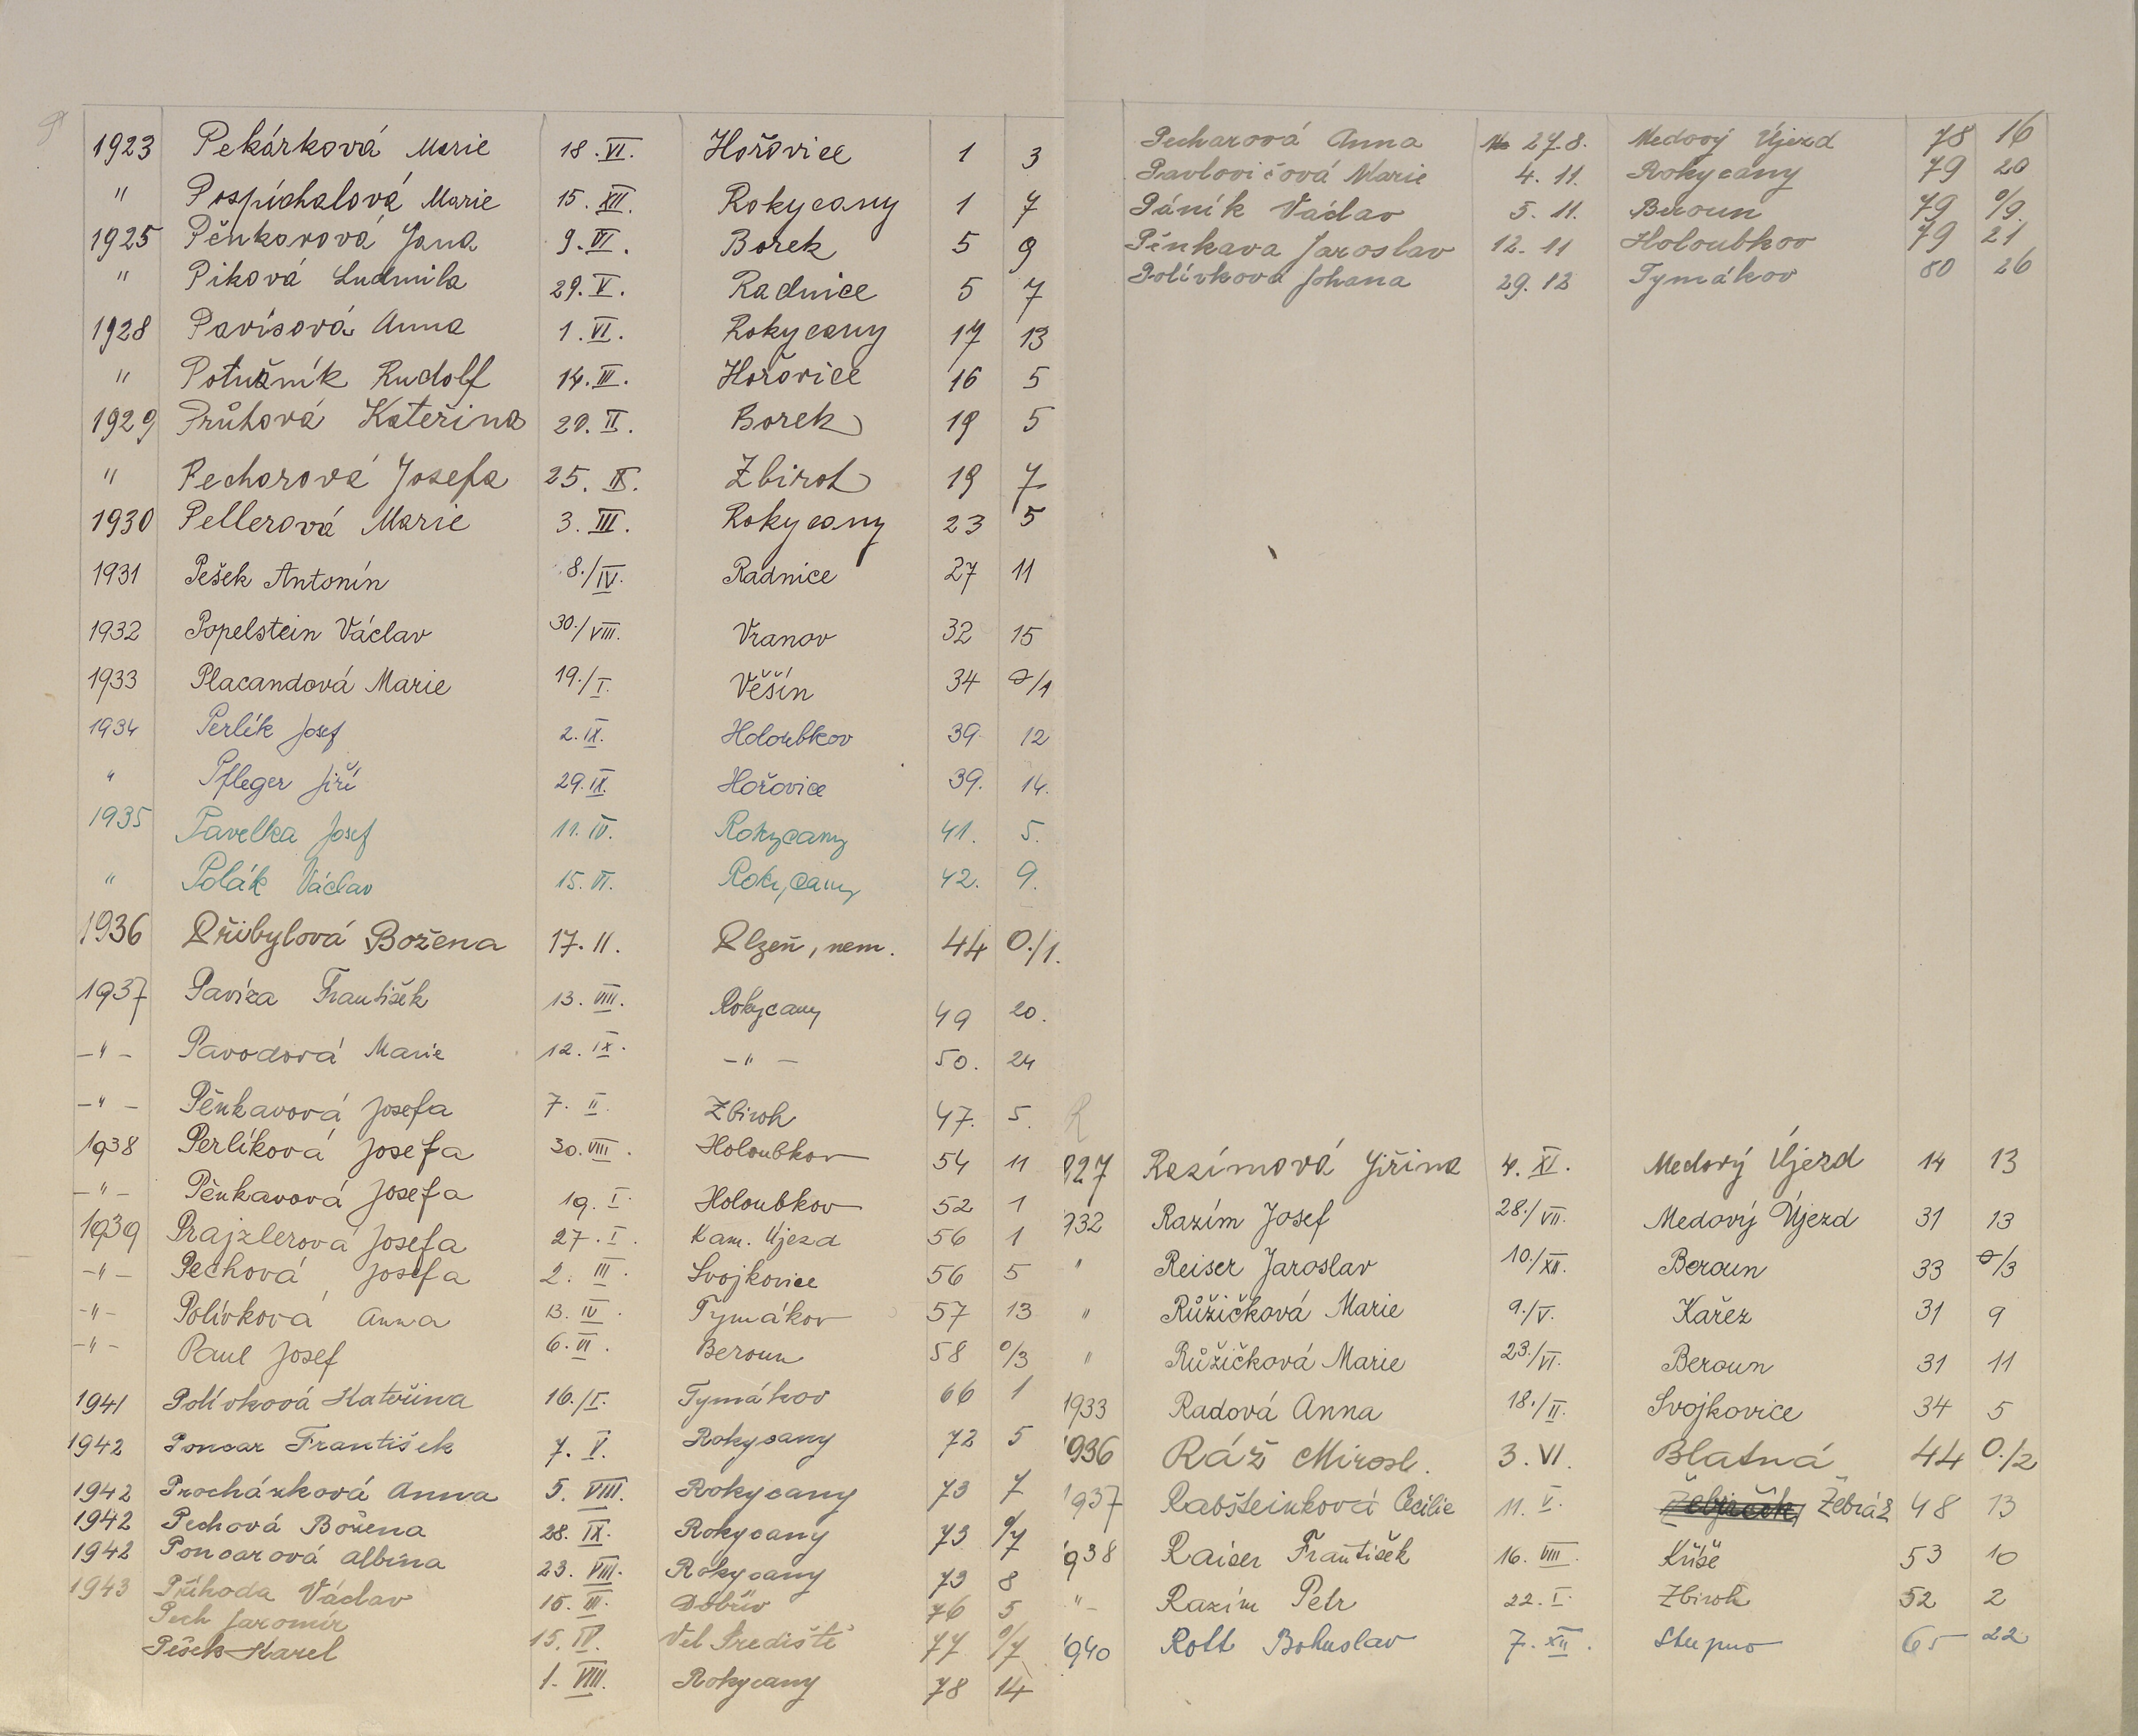 P
1923 Pekárková Marie 18. VI. Hořovice 1 3
" Pospíchalová Marie 15. XII. Rokycany 1 7
1925 Pěnkavová Jana 9. VI. Borek 5 9
" Piková Ludmila 29. V. Radnice 5 7
1928 Pavísová Anna 1. VI. Rokycany 17 13
" Potužník Rudolf 14. III. Hořovice 16 5
1929 Průhová Kateřina 20. II. Borek 19 5
" Pecharová Josefa 25. IX. Zbiroh 19 7
1930 Pellerová Marie 3. III. Rokycany 23 5
1931 Pešek Antonín 8./IV. Radnice 27 11
1932 Popelstein Václav 30./VIII. Vranov 32 15
1933 Placandová Marie 19./I. Věšín 34 0/1
1934 Perlík Josef 2. IX. Holoubkov 39 12
" Pfleger Jiří 29. IX. Hořovice 39. 14.
1935 Pavelka Josef 11. IV. Rokycany 41. 5.
" Polák Václav 15. VI. Rokycany 42. 9.
1936 Přibylová Božena 17. II. Plzeň, nem. 44 0./1.
1937 Pavíza František 13. VIII. Rokycany 49 20.
-"- Pavodová Marie 12. IX. -"- 50. 24
-"- Pěnkavová Josefa 7. II. Zbiroh 47. 5.
1938 Perlíková Josefa 30. VIII. Holoubkov 54 11
-"- Pěnkavová Josefa 19. I. Holoubkov 52 1
1939 Prajzlerová Josefa 27. I. Kam. Újezd 56 1
-"- Pechová Josefa 2. III. Svojkovice 56 5
-"- Polívková Anna 13. IV. Tymákov 57 13
-"- Paul Josef 6. VI. Beroun 58 0/3
1941 Polívková Kateřina 16./I. Tymákov 66 1
1942 Poncar František 7. V. Rokycany 72 5
1942 Procházková Anna 5. VIII. Rokycany 73 7
1942 Pechová Božena 28. IX. Rokycany 73 0/7
1942 Poncarová Albína 23. VIII. Rokycany 73 8
1943 Příhoda Václav 15. III. Dobřív 76 5
Pech Jaromír 15. IV. Vel Středišti 77 0/7
Pešek Karel 1. VIII. Rokycany 78 14
Pecharová Anna 27.8. Medový Újezd 78 16
Pavlovičová Marie 4. 11. Rokycany 79 20
Páník Václav 5. 11. Beroun 79 0/9.
Pěnkava Jaroslav 12. 11 Holoubkov 79 21
Polívková Johana 29. 12 Tymákov 80 26
R
927 Razímová Jiřina 4. XI. Medový Újezd 14 13
932 Razím Josef 28./VII. Medový Újezd 31 13
" Reiser Jaroslav 10./XII. Beroun 33 0/3
" Růžičková Marie 9./V. Kařez 31 9
" Růžičková Marie 23./VI. Beroun 31 11
1933 Radová Anna 18./II. Svojkovice 34 5
1936 Ráž Mirosl. 3. VI. Blatná 44 0./2
1937 Rabšteinková Cecilie 11. V. Žebrák 48 13
938 Raiser František 16. VIII. Kříše 53 10
"- Razím Petr 22. I. Zbiroh 52 2
1940 Rott Bohuslav 7. XII. Stupno 65 22